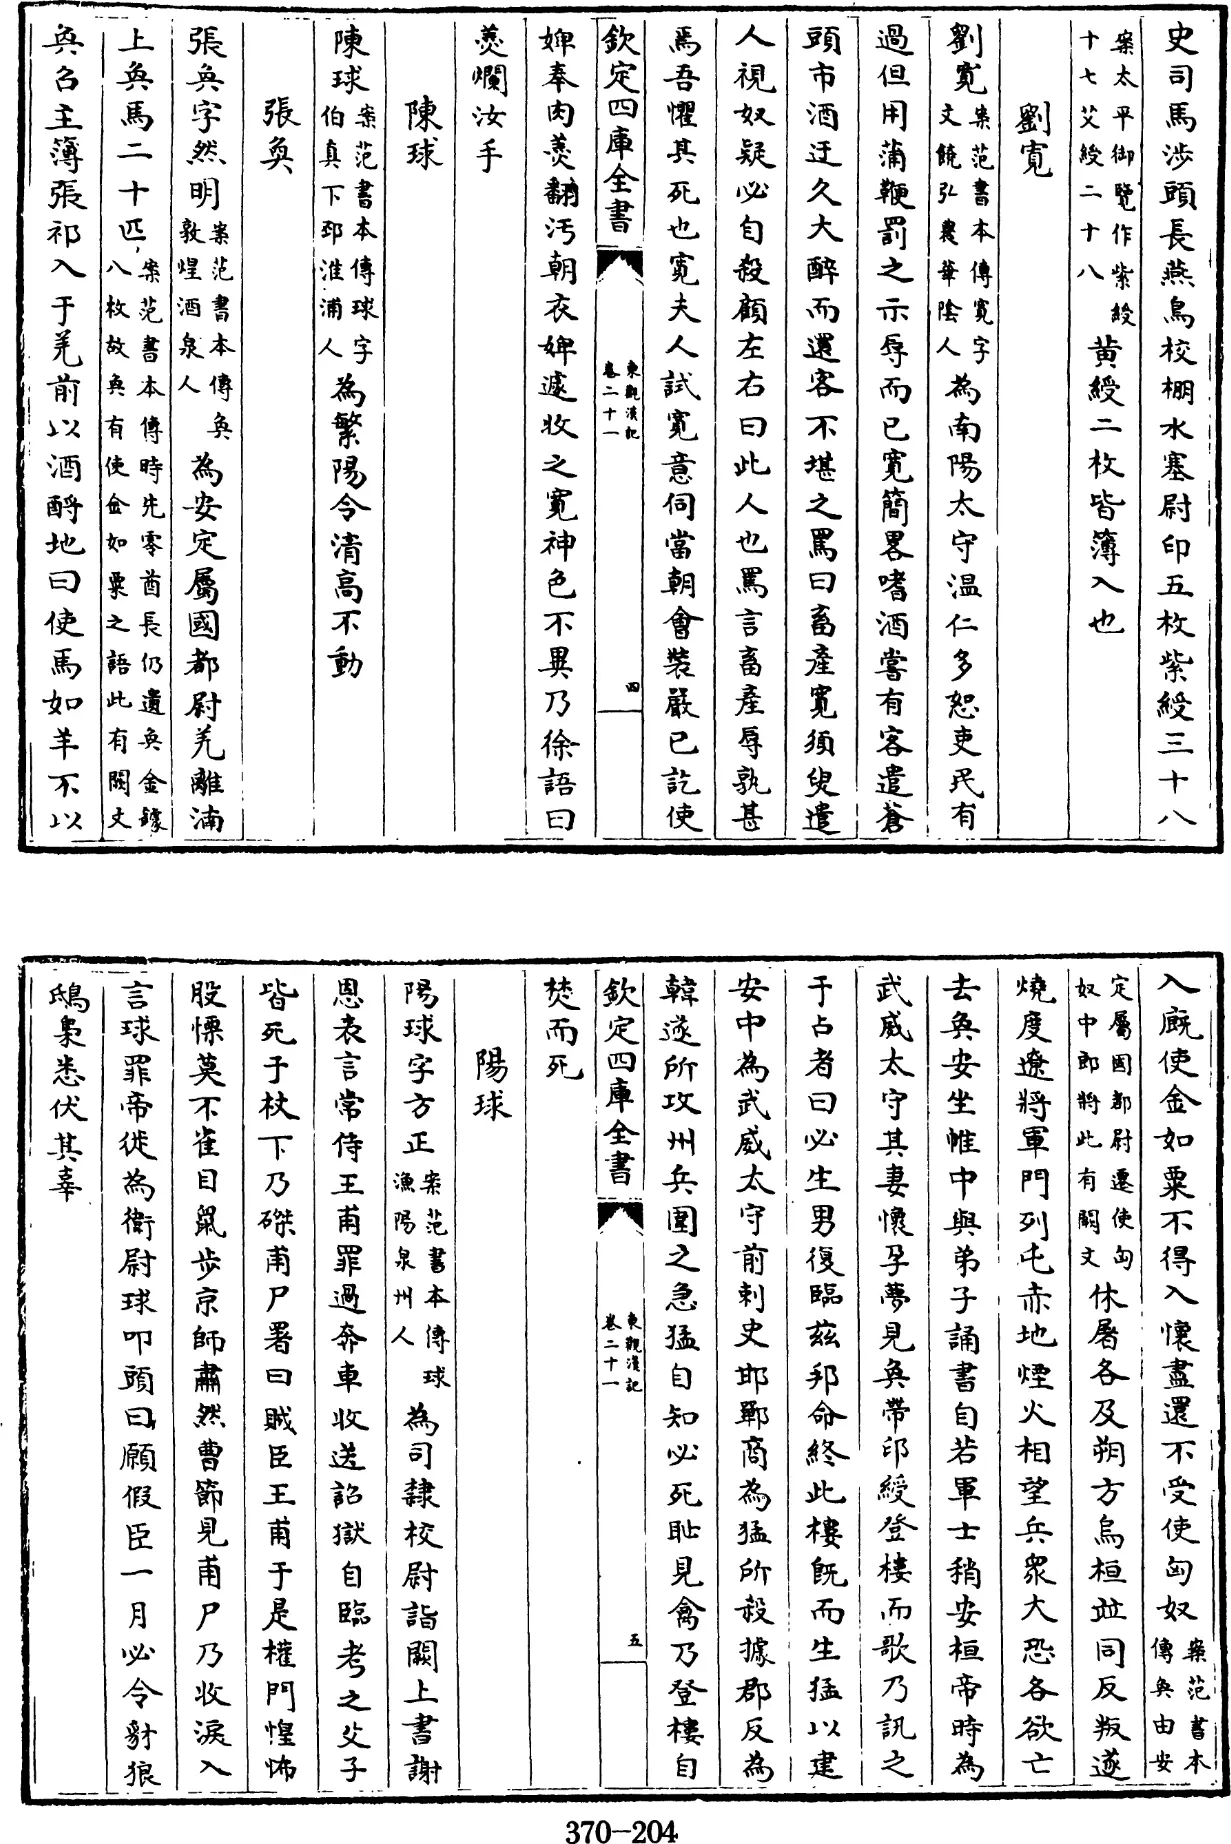 史司馬涉頭長燕鳥校棚水塞尉印五枚紫綬三十八
案太平御覽作紫綬
十七艾綬二十八
黄綬二枚皆簿入也
劉寛
劉寛
案范書本傳寛字
文饒弘農華陰人
為南陽太守温仁多恕吏民有
過但用蒲鞭罰之示辱而已寛簡畧嗜酒嘗有客遣蒼
頭市酒迂久大醉而還客不堪之罵曰畜產寛須臾遣
人視奴疑必自殺顧左右曰此人也罵言畜產辱孰甚
焉吾懼其死也寛夫人試寛意伺當朝會裝嚴已訖使
欽定四庫全書
東觀漢記
卷二十一
四
婢奉肉羮翻汚朝衣婢遽收之寛神色不異乃徐語曰
羮爛汝手
陳球
陳球
案范書本傳球字
伯真下邳淮浦人
為繁陽令清高不動
張奐
張奐字然明
案范書本傳奐
敦煌酒泉人
為安定屬國都尉羌離湳
上奐馬二十匹
案范書本傳時先零酋長仍遺奐金鐻
八枚故奐有使金如粟之語此有闕文
奐召主簿張祁入于羌前以酒酹地曰使馬如羊不以
入廐使金如粟不得入懷盡還不受使匈奴
案范書本
傳奐由安
定屬國都尉遷使匈
奴中郎將此有闕文
休屠各及朔方烏桓並同反叛遂
燒度遼將軍門列屯赤地煙火相望兵衆大恐各欲亡
去奐安坐帷中與弟子誦書自若軍士稍安桓帝時為
武威太守其妻懷孕夢見奐帶印綬登樓而歌乃訊之
于占者曰必生男復臨兹邦命終此樓旣而生猛以建
安中為武威太守前刺史邯鄲商為猛所殺據郡反為
韓遂所攻州兵圍之急猛自知必死恥見禽乃登樓自
欽定四庫全書
東觀漢記
卷二十一
五
焚而死
陽球
陽球字方正
案范書本傳球
漁陽泉州人
為司隸校尉詣闕上書謝
恩表言常侍王甫罪過奔車收送詔獄自臨考之父子
皆死于杖下乃磔甫尸署曰賊臣王甫于是權門惶怖
股慄莫不雀目鼠步京師肅然曹節見甫尸乃收淚入
言球罪帝徙為衛尉球叩頭曰願假臣一月必令豺狼
鴟梟悉伏其辜
370-204